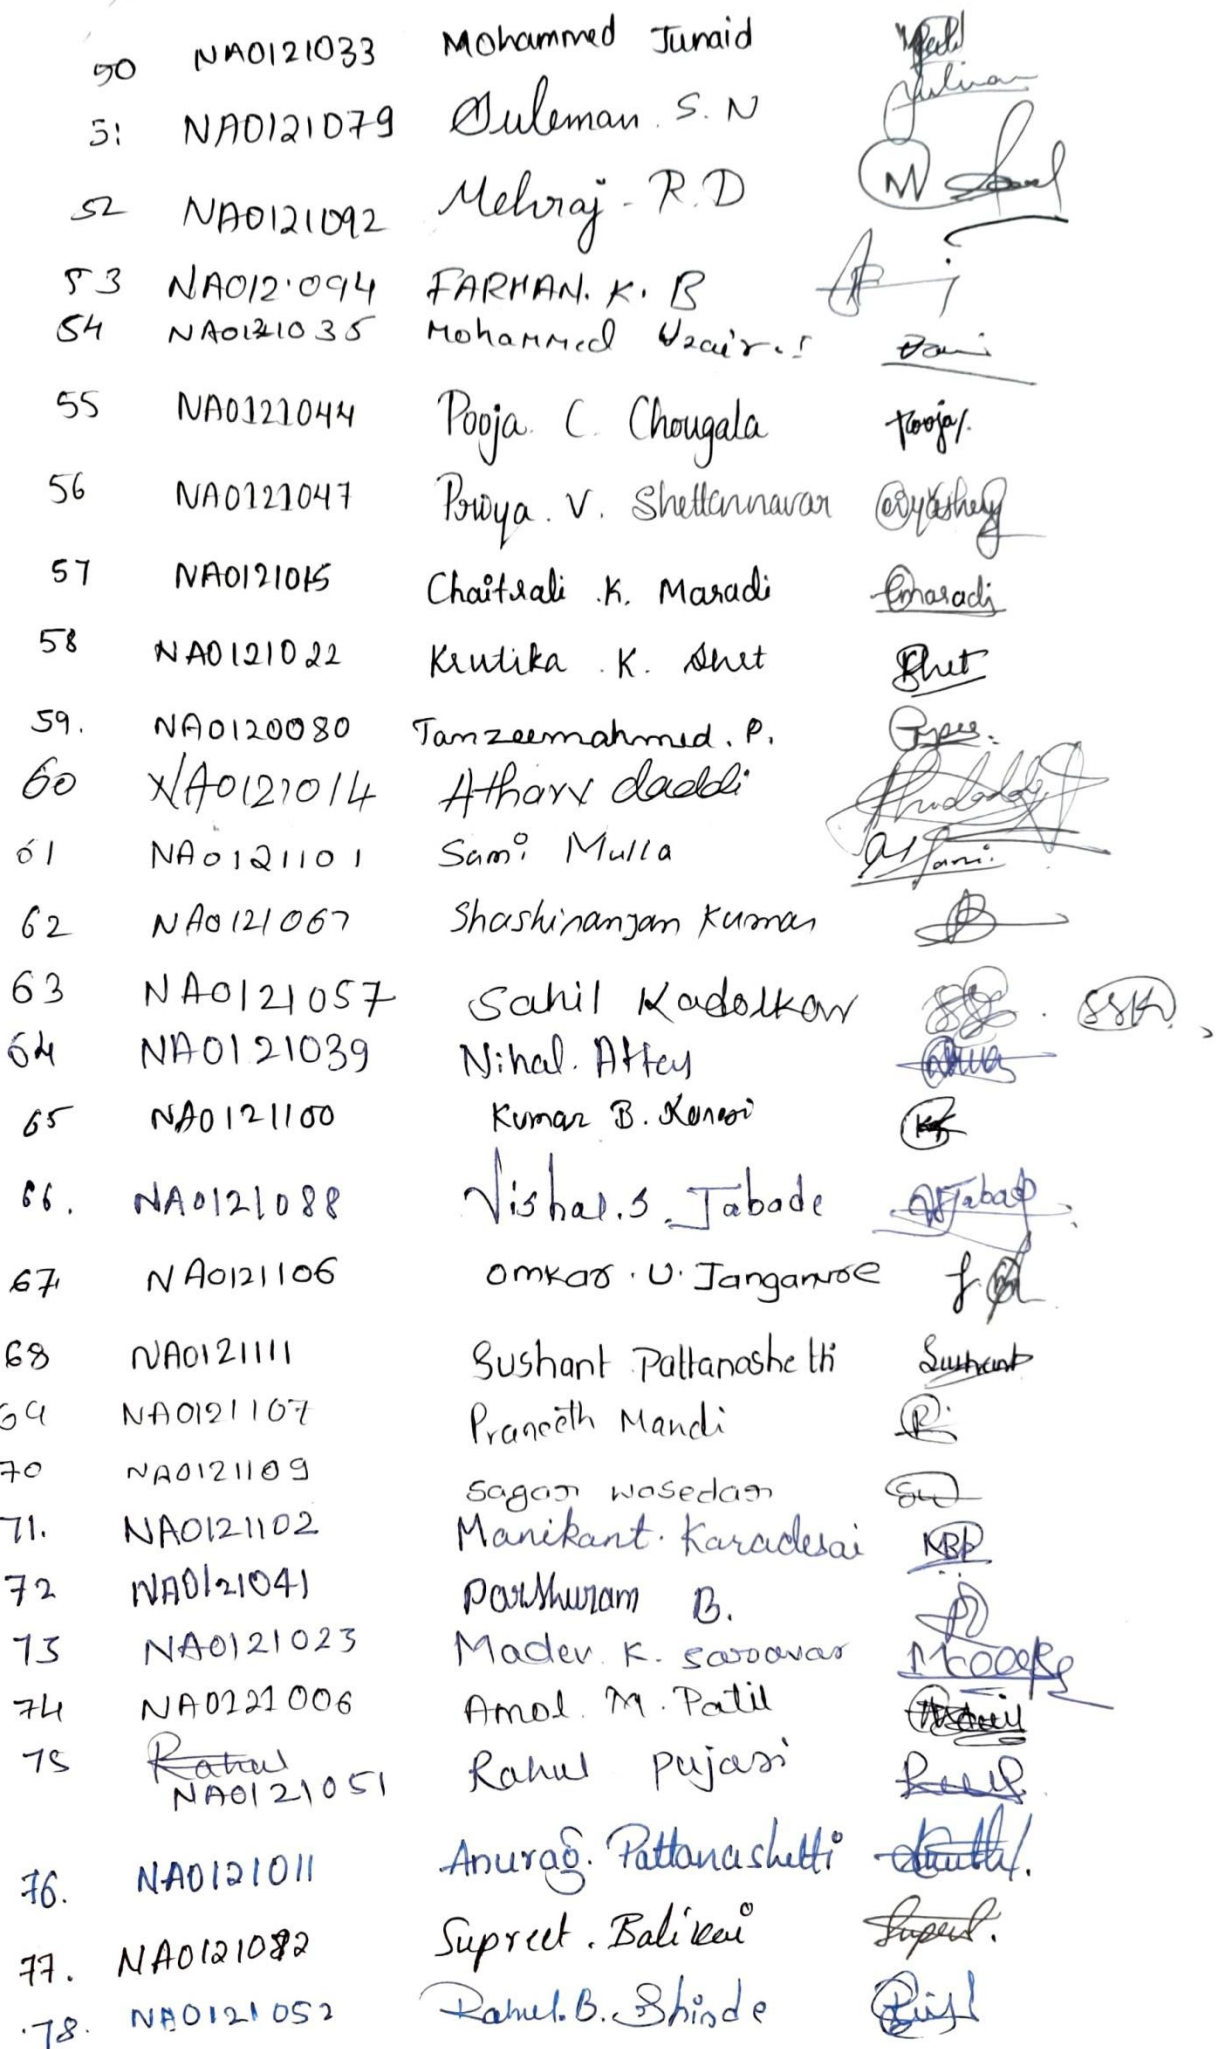 50 NA0121033 Mohammed Junaid
51 NA0121079 Suleman. S. N
52 NA0121092 Mehraj - R. D
53 NA012·094 FARHAN. K. B
54 NA0121035 Mohammed Uzair. I
55 NA0121044 Pooja. C. Chougala Pooja
56 NA0121047 Priya. V. Shettannavar
57 NA0121015 Chaitrali .K. Maradi Cmaradi
58 NA0121022 Krutika .K. Shet Shet
59. NA0120080 Tanzeemahmed. P.
60 NA0121014 Atharv daddi
61 NA0121101 Sami Mulla
62 NA0121067 Shashiranjan Kumar
63 NA0121057 Sahil Kadolkar SSK
64 NA0121039 Nihal. Attey
65 NA0121100 Kumar B.
66. NA0121088 Vishal.S. Jabade
67 NA0121106 Omkar .U. 
68 NA0121111 Sushant Pattanashetti Sushant
69 NA0121107 Praneeth Mandi
70 NA0121109 Sagar Wasedar SW
71. NA0121102 Manikant. Karadesai KBP
72 NA0121041 Parshuram B.
73 NA0121023 Madev. K. Saroavar
74 NA0121006 Amol. M. Patil
75 Rahul
NA0121051 Rahul Pujari
76. NA0121011 Anurag. Pattanashetti
77. NA0121082 Supreet. Balikai
78. NA0121052 Rahul.B. Shinde